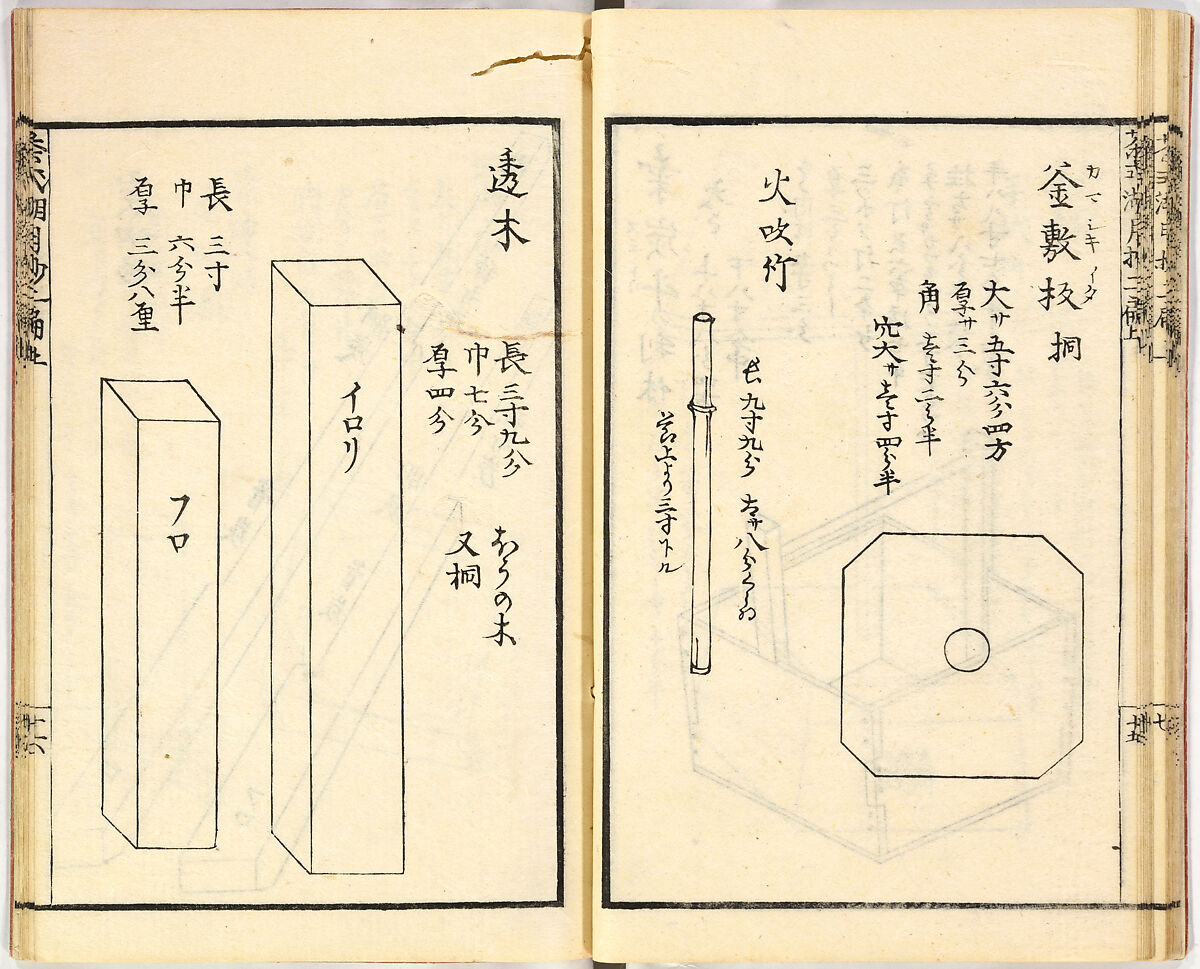 釜敷板 桐
カマシキイタ
大サ五寸六分四方
厚サ三分
角 壱寸二分半
穴大サ壱寸四分半
火吹竹
長九寸九分 大サ八分
節上より三寸下ル
十五
透木
長 三寸九分
巾 七分
厚 四分
ほうの木
又桐
イロリ
長 三寸
巾 六分半
厚 三分八厘
フロ
十六